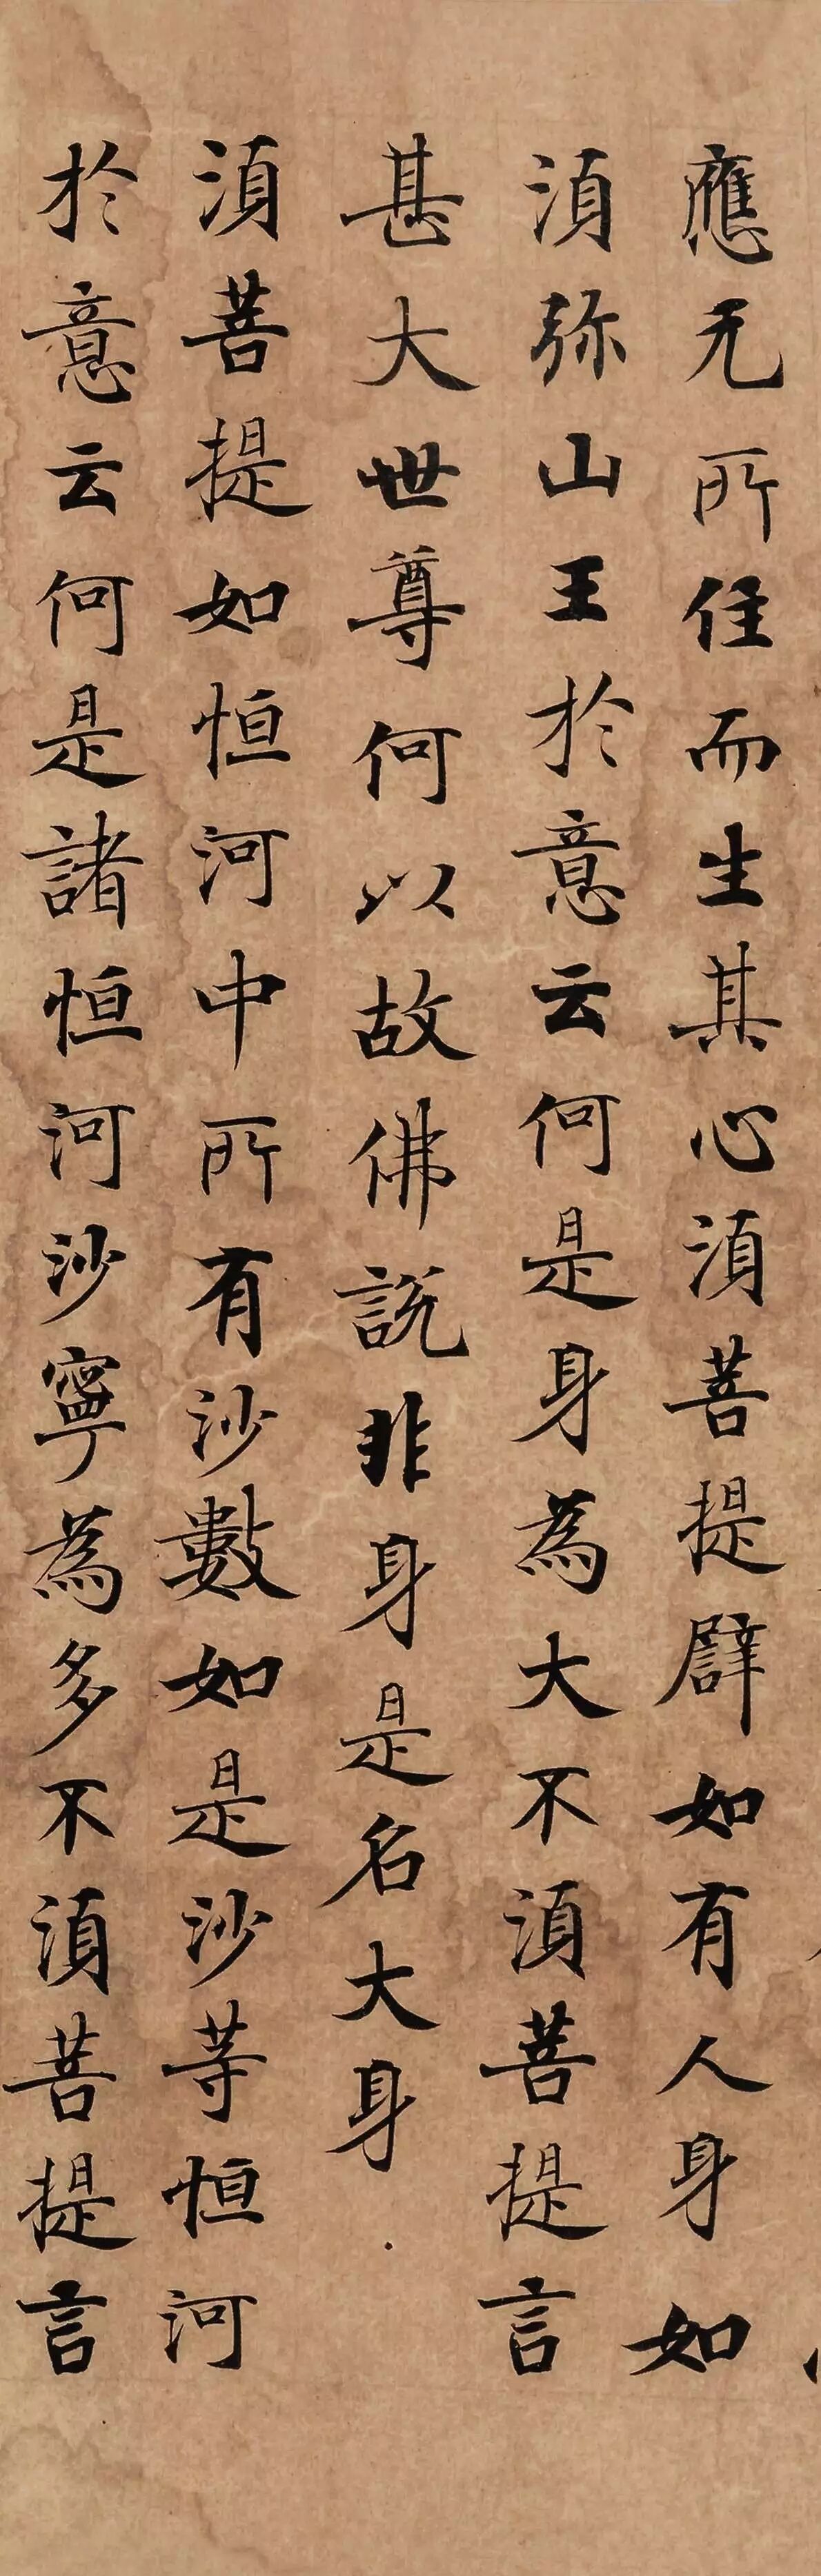 應无所住而生其心湏菩提譬如有人身如
湏弥山王於意云何是身為大不湏菩提言
甚大世尊何以故佛說非身是名大身
湏菩提如恒河中所有沙數如是沙等恒河
於意云何是諸恒河沙寧為多不湏菩提言